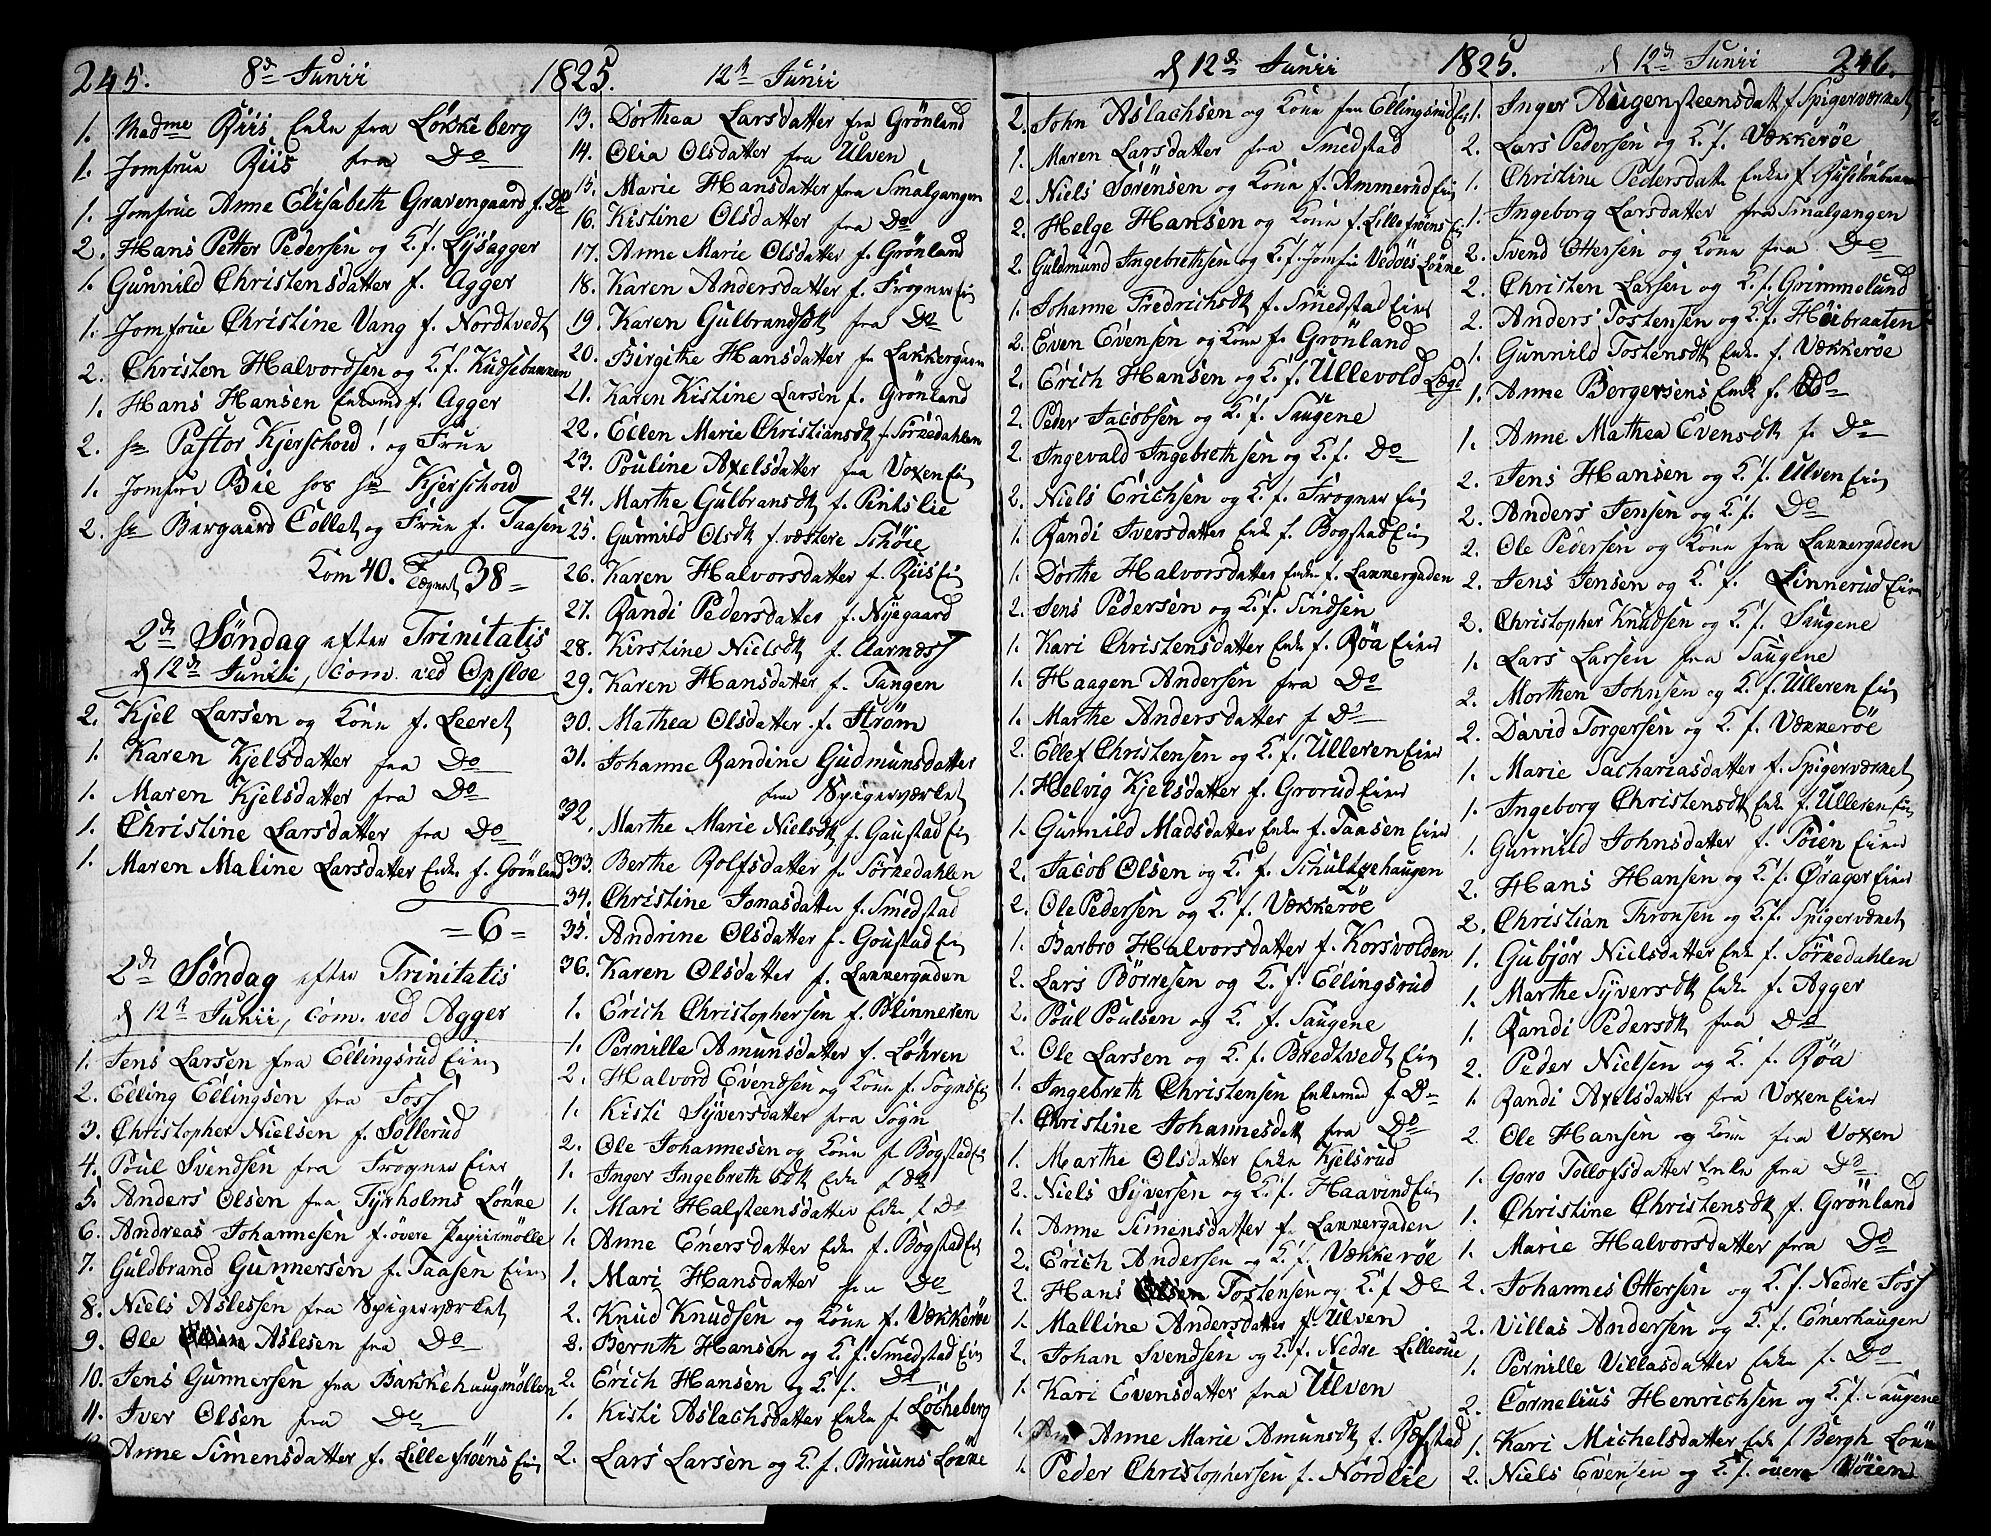 245. 8de Junii 1825. 12te Junii
1. Madme Riis Enke fra Løkkeberg
1. Jomfrue Riis fra Do
1. Jomfrue Anne Elisabeth Gravengaard f. Do
2. Hans Petter Pedersen og K. f. Lysagger
1. Gunnild Christensdatter f. Agger
1. Jomfrue Christine Vang f. Nordtvedt
2. Christen Halvordsen og K. f. Kudsebakken
1. Hans Hansen Enkemd f. Agger
2. Hr Pastor Kjerschow! og Frue
1. Jomfru Bie hos Hr Kjerschow
2. Hr Bargaard Collet og Frue f. Taasen
Kom 40. Tegnet 38 =
2den Søndag efter Trinitatis
d 12te Junii, Com. ved Opsloe
2. Kjel Larsen og Kone f. Leeret
1. Karen Kjelsdatter fra Do
1. Maren Kjelsdatter fra Do
1. Christine Larsdatter fra Do
1. Maren Maline Larsdatter Enke f. Grønland
= 6 =
2den Søndag efter Trinitatis
d 12te Junii, Com. ved Agger
1. Jens Larsen fra Ellingsrud Eier
2. Elling Ellingsen fra Foss
3. Christopher Nielsen f. Sollerud
4. Poul Svendsen fra Frogner Eier
5. Anders Olsen fra Tyrholms Lønne
6. Andreas Johannesen f. øvre Papiirmølle
7. Guldbrand Gunnersen f. Taasen Eier
8. Niels Aslessen fra Spigerværket
9. Ole Aslesen fra Do
10. Jens Gunnersen fra Bakkehaugmøllen
11. Iver Olsen fra Do
12. Anne Simensdatter f. Lille Frøens Eier
13. Dorthea Larsdatter fra Grønland
14. Olia Olsdatter fra Ulven
15. Marie Hansdatter fra Smalgangen
16. Kistine Olsdatter fra Do
17. Anne Marie Olsdatter f. Grønland
18. Karen Andersdatter f. Frogner Ei
19. Karen Gulbrandsdt fra Do
20. Birgithe Hansdatter fr. Lakkergaen
21. Karen Kistine Larsen f. Grønland
22. Ellen Marie Christiansdt f. Sørkedahlen
23. Pouline Axelsdatter fra Voxen Ei
24. Marthe Gulbransdt f. Pinkslie
25. Gunnild Olsdt f. væstere Schøie
26. Karen Halvorsdatter f. Riis Ei
27. Randi Pedersdatter f. Nyegaard
28. Kirstine Nielsdt f. Aarness
29. Karen Hansdatter f. Tangen
30. Mathea Olsdatter f. Strøm
31. Johanne Randine Gudmunsdatter
fra Spigerværket
32. Marthe Marie Nielsdt f. Gaustad Ei
33. Berthe Rolfsdatter fr. Sørkedahlen
34. Christine Jonasdatter f. Smedstad
35. Andrine Olsdatter f. Goustad Ei
36. Karen Olsdatter f. Lakkergaden
1. Erich Christophersen f. Blinneren
1. Pernille Amunsdatter f. Løhren
2. Halvord Evendsen og Kone f. Sogns Ei
1. Kisti Syversdatter fra Sogn
2. Ole Johannesen og Kone f. Bogstad Ei
1. Inger Ingebrethsdt Enke f. Do
1. Mari Halsteensdatter Enke f. Do
1. Anne Enersdatter Enke f. Bogstad Ei
1. Mari Hansdatter fra Do
2. Knud Knudsen og Kone f. Vækkerøe
2. Bernth Hansen og K. f. Smedstad Ei
2. Erich Hansen og K. f. Do
1. Kisti Aslachsdatter Enke f. Løcheberg
2. Lars Larsen og K. f. Bruuns Lønne
d 12de Junii 1825. d 12te Junii 246.
2. John Aslachsen og Kone fra Ellingsrud Ei
1. Maren Larsdatter fra Smedstad
2. Niels Sørensen og Kone f. Ammerud Ei
2. Helge Hansen og Kone f. Lille frøens Ei
2. Guldmund Ingebrethsen og K. f. Jomfru Vedøes Lønne
1. Johanne Fredrichsdt f. Smedstad Eier
2. Even Evensen og Kone f. Grønland
2. Erich Hansen og K. f. Ullevold Læge
2. Peder Jacobsen og K. f. Saugene
2. Ingevald Ingebrethsen og K. f. Do
2. Niels Erichsen og K. f. Frogner Ei
1. Randi Iversdatter Enke f. Bogstad Ei
1. Dorthe Halvorsdatter Enke f. Lakkergaden
2. Jens Pedersen og K. f. Sindsen
1. Kari Christensdatter Enke f. Røa Eier
1. Haagen Andersen fra Do
1. Marthe Andersdatter f Do
2. Ellef Christensen og K. f. Ulleren Eier
1. Helvig Kjelsdatter f. Grorud Eier
1. Gunnild Madsdatter Enke f. Taasen Eier
2. Jacob Olsen og K. f. Schultzehaugen
2. Ole Pedersen og K. f. Vækkerøe
1. Barbro Halvorsdatter f. Korsvolden
2. Lars Børresen og K. f. Ellingsrud
2. Poul Poulsen og K. f. Saugene
2. Ole Larsen og K. f. Bredtvedt Ei
1. Ingebreth Christensen Enkemd f. Do
1. Christine Johannesdatt fra Do
1. Marthe Olsdatter Enke Kjelsrud
2. Niels Syversen og K. f. Haavind Ei
1. Anne Simensdatter f. Lakkergaden
2. Erich Andersen og K. f. Vækkerøe
2. Hans Tostensen og K. f Do
1. Malline Andersdatter f. Ulven
2. Johan Svendsen og K. f. Nedre Lilleoue
1. Kari Evensdatter fra Ulven
1. Anne Marie Amunsdt f. Refstad
1. Peder Christophersen f. Nordlie
1. Inger Augensteensdatt f. Spigerværket
2. Lars Pedersen og K. f. Vækkerøe
1. Christine Pedersdatt Enke f.
1. Ingeborg Larsdatter fra Smalgangen
2. Svend Ottersen og Kone fra Do
2. Christen Larsen og K. f. Grimmelund
2. Anders Tostensen og K. f. Høibraaten
1. Gunnild Tostensdt Enke f. Vækkerøe
1. Anne Bergersens Enke f. Do
1. Anne Mathea Evensdt f. Do
2. Jens Hansen og K. f. Ulven Ei
2. Anders Jensen og K. f. Do
2. Ole Pedersen og Kone fra Lakkergaden
2. Jens Jensen og K. f. Linnerud Eier
2. Christopher Knudsen og K. f. Saugene
1. Lars Larsen fra Saugene
2. Morthen Johnsen og K. f. Ulleren Ei
2. David Torgersen og K. f. Vækkerøe
1. Marie Sachariasdatter f. Spigerværket
1. Ingeborg Christensdt Enke f. Ulleren Ei
1. Gunnild Johnsdatter f. Tøien Eier
2. Hans Hansen og K. f. Ørager Eier
2. Christian Thronsen og K. f. Spigerværket
1. Gubjør Nielsdatter Enke f. Sørkedahlen
1. Marthe Syversdt Enke f. Agger
1. Randi Pedersdt fra Do
2. Peder Nielsen og K. f. Røa
1. Randi Axelsdatter fra Voxen Eier
2. Ole Hansen og Kone fra Voxen
1. Goro Tollofsdatter Enke fra Do
1. Christine Christensdt f. Grønland
1. Marie Halvorsdatter fra Do
2. Johannes Ottersen og K. f. Nedre Foss
2. Villas Andersen og K. f. Enerhaugen
1. Pernille Villasdatter Enke f. Do
2. Cornelius Henrichsen og K. f. Saugene
1. Kari Michelsdatter Enk f. Bergh Lønne
2. Niels Evensen og K. f. øvere Vøien